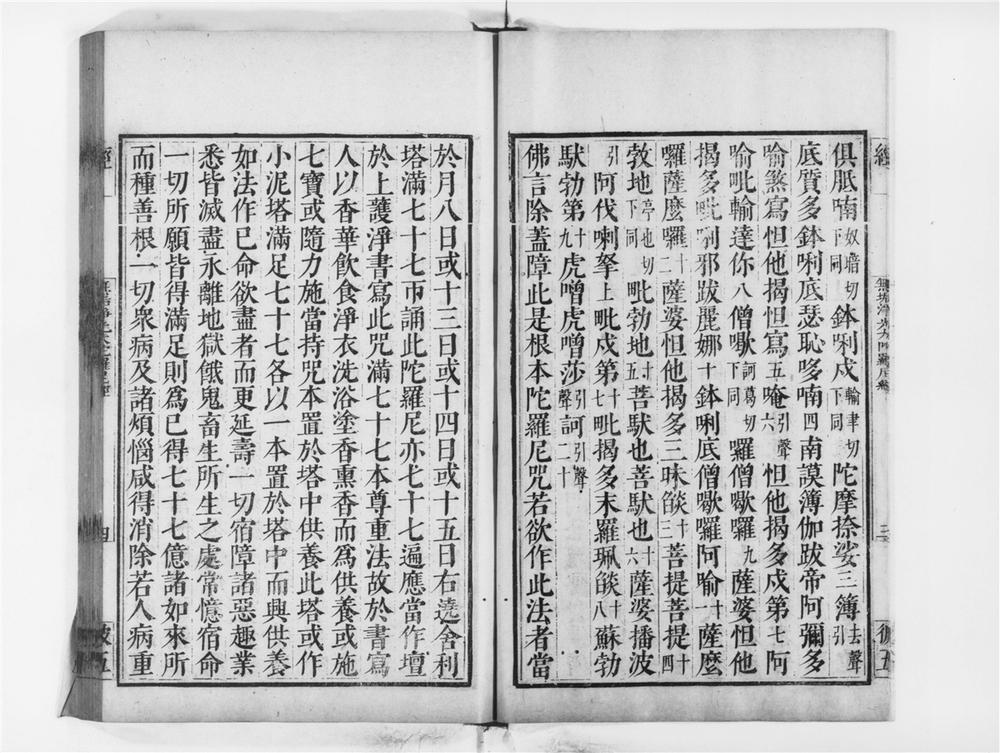 俱胝喃奴暗切下同鉢唎戍輸聿切下同陀摩捺娑三簿去聲引
底質多鉢唎底瑟恥哆喃四南謨薄伽跋帝阿彌多
喻煞寫怛他揭怛寫五唵引聲六怛他揭多戍第七阿
喻毗輸達你八僧㗭訶葛切下同羅僧㗭羅九薩婆怛他
揭多毗唎邪跋麗娜十鉢唎底僧㗭囉阿喻十一薩麼
囉薩麼囉十二薩婆怛他揭多三昧燄十三菩提菩提十四
勃地亭也切下同毗勃地十五菩馱也菩馱也十六薩婆播波
引阿伐喇拏上毗戍第十七毗揭多末羅珮燄十八蘇勃
馱勃第十九虎嚕虎嚕莎引聲訶引聲二十
佛言除蓋障此是根本陀羅尼咒若欲作此法者當
於月八日或十三日或十四日或十五日右遶舍利
塔滿七十七帀誦此陀羅尼亦七十七遍應當作壇
於上護淨書寫此咒滿七十七本尊重法故於書寫
人以香華飲食淨衣洗浴塗香熏香而爲供養或施
七寶或隨力施當持咒本置於塔中供養此塔或作
小泥塔滿足七十七各以一本置於塔中而興供養
如法作已命欲盡者而更延壽一切宿障諸惡趣業
悉皆滅盡永離地獄餓鬼畜生所生之處常憶宿命
一切所願皆得滿足則爲已得七十七億諸如來所
而種善根一切衆病及諸煩惱咸得消除若人病重
經
四